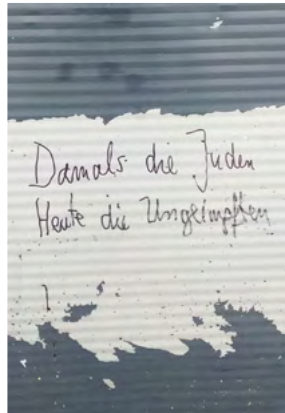 Damals die Juden
Heute die Ungeimpften